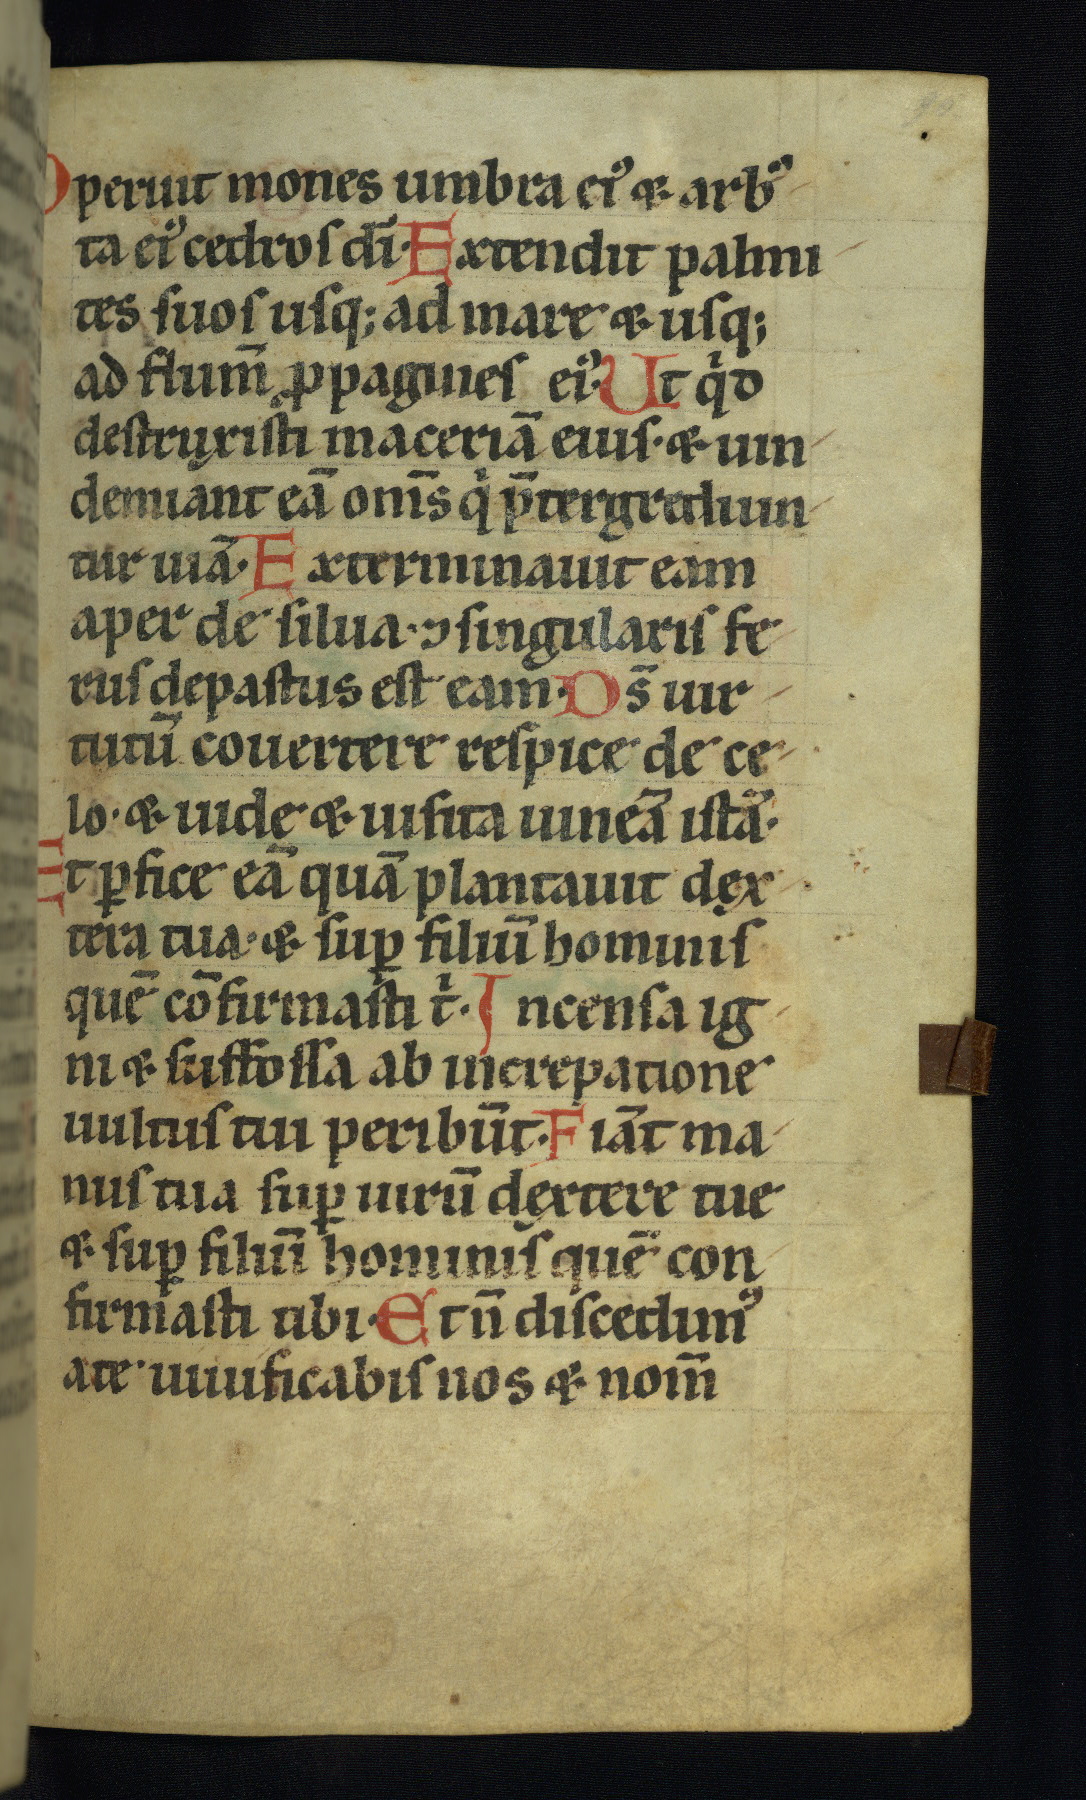 Operuit mones umbra eiꝰ ⁊ arbꝰ
ta eiꝰ cedros dī. Extendit palmi
tes suos usq; ad mare ⁊ usq;
ad flum̄ ꝓpagines eiꝰ. Ut qͥd
destruxisti maceriā eius. ⁊ uin
demiant eā om̄s qͥ p̄tergrediun
tur uiā. Exterminauit eam
aper de silua. ⁊ singularis fe
rus depastus est eam. Ds̄ uir
tutū couertere respice de ce
lo. ⁊ uide ⁊ uisita uineā istā.
Et ꝑfice eā quā plantauit dex
tera tua. ⁊ suꝑ filiū hominis
quē cōfirmasti tͥ. Incensa ig
ni ⁊ suffossa ab increpatione
uultus tui peribūt. Fiāt ma
nus tua suꝑ uirū dextere tue
⁊ suꝑ filiū hominis quē con
firmasti tibi. Et n̄ discedimꝰ
a te uiuificabis nos ⁊ nom̄